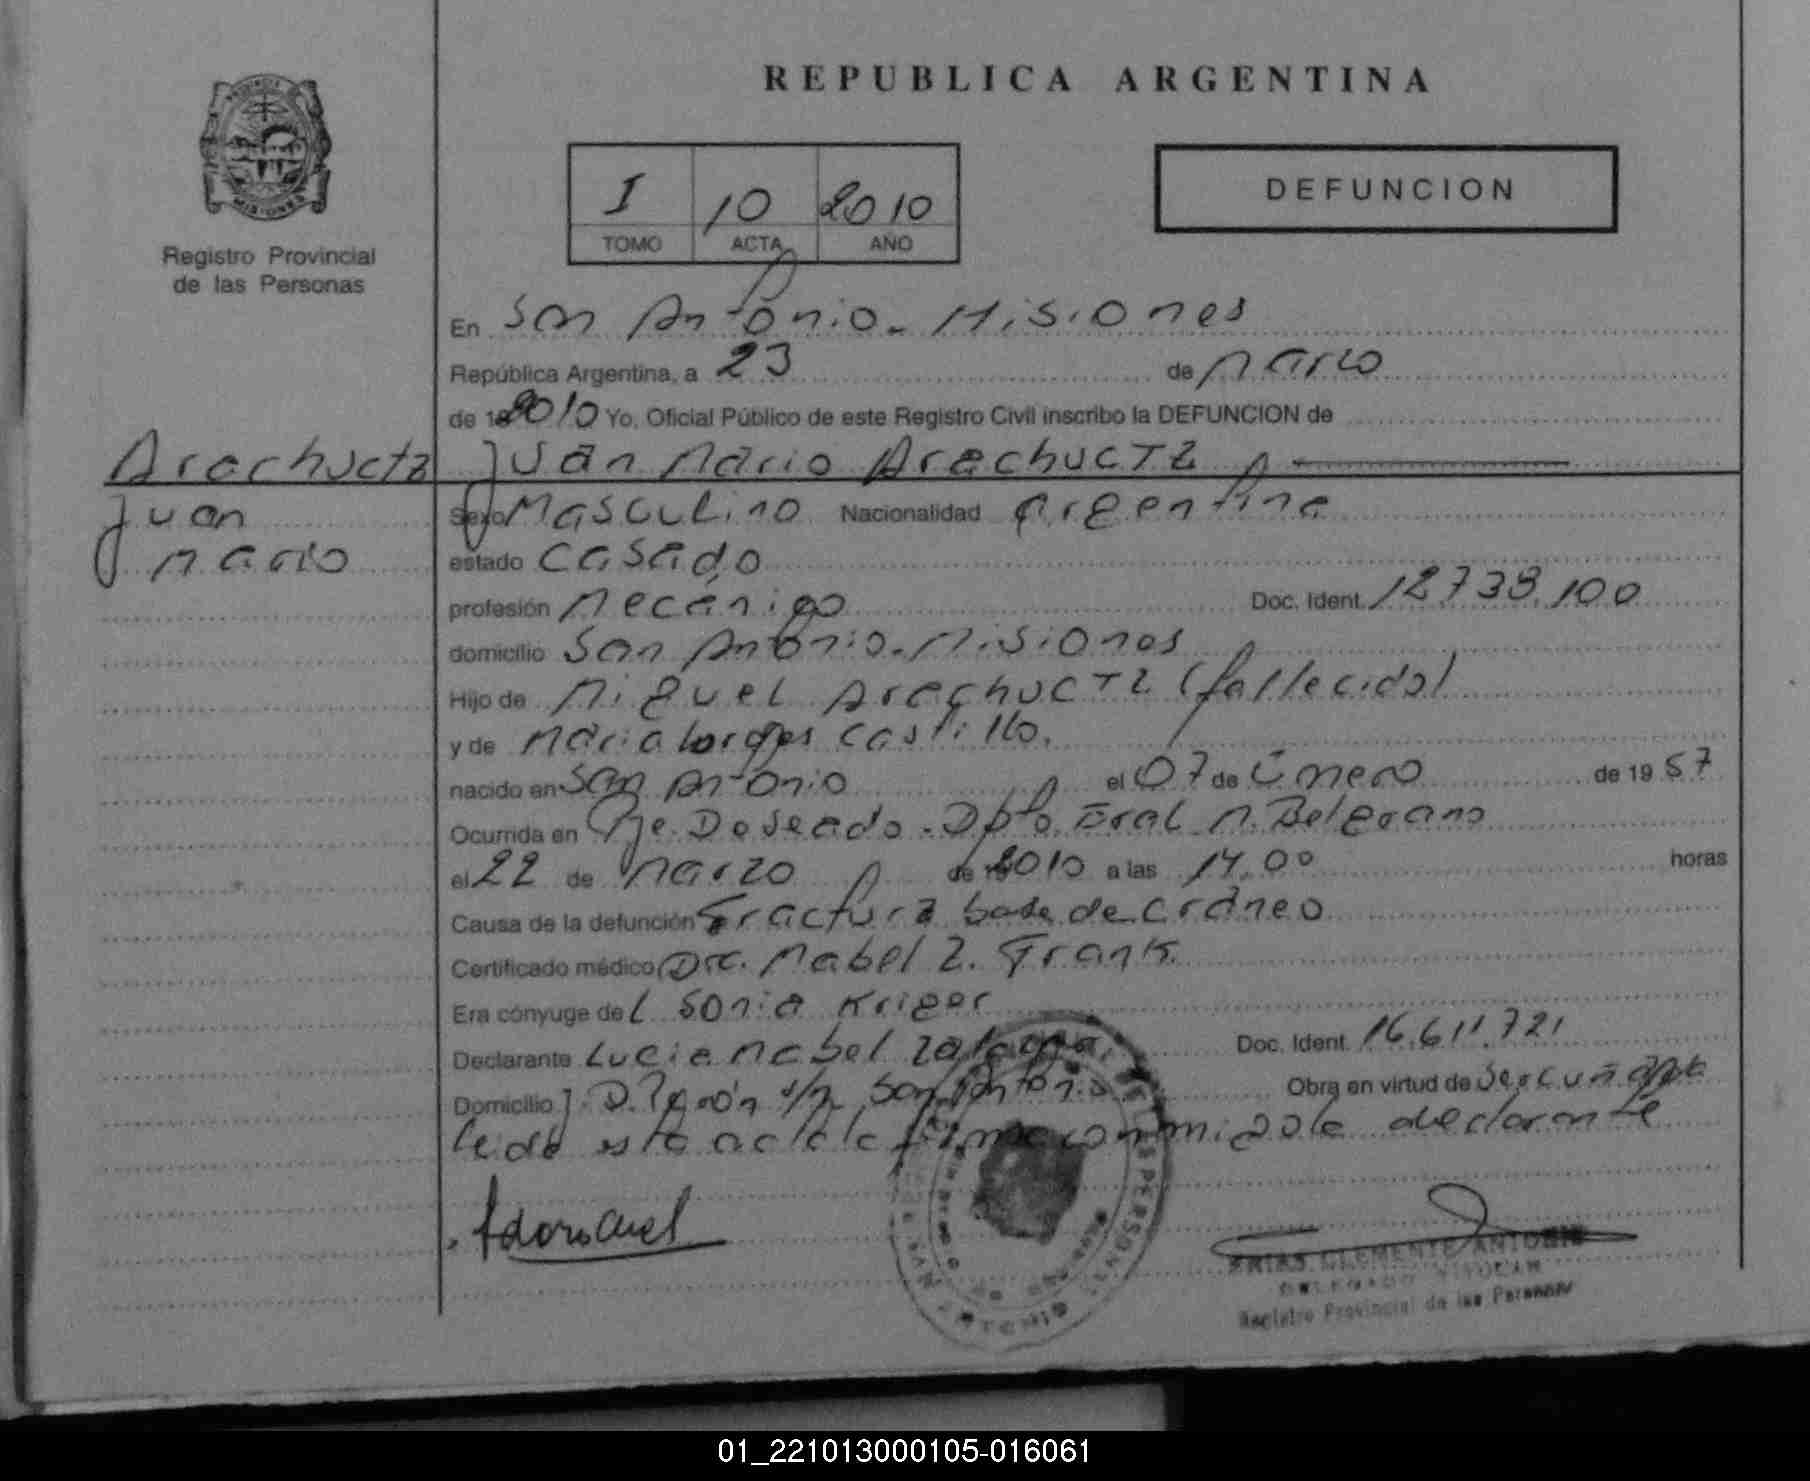 REPUBLICA ARGENTINA
Registro Provincial
de las Personas
I 10 2010
TOMO ACTA AÑO
DEFUNCION
En San Antonio - Misiones
República Argentina, a 23 de Marzo
de 2010 Yo, Oficial Público de este Registro Civil inscribo la DEFUNCION de
Arachuctz
Juan Mario Arachuctz
Juan
Mario
Sexo Masculino Nacionalidad Argentina
estado Casado
profesión Mecánico Doc. Ident. 12.738.100
domicilio San Antonio - Misiones
Hijo de Miguel Arachuctz (fallecido)
y de Maria Castillo.
nacido en San Antonio el 07 de Enero de 19 57
Ocurrida en Pje. Doseado - Dpto. Gral M. Belgrano
el 22 de Marzo de 2010 a las 14.00 horas
Causa de la defunción Fractura base de cráneo
Certificado médico Dra. Mabel Z. Frank
Era cónyuge de Sonia Kriger
Declarante Lucia Mabel Doc. Ident. 16.611.721
Domicilio J. D. Perón s/n San Antonio Obra en virtud de
leida esta acta la firma conmigo la declarante
FRIAS CLEMENTE ANTONIO
DELEGADO TITULAR
Registro Provincial de las Personas
01_221013000105-016061